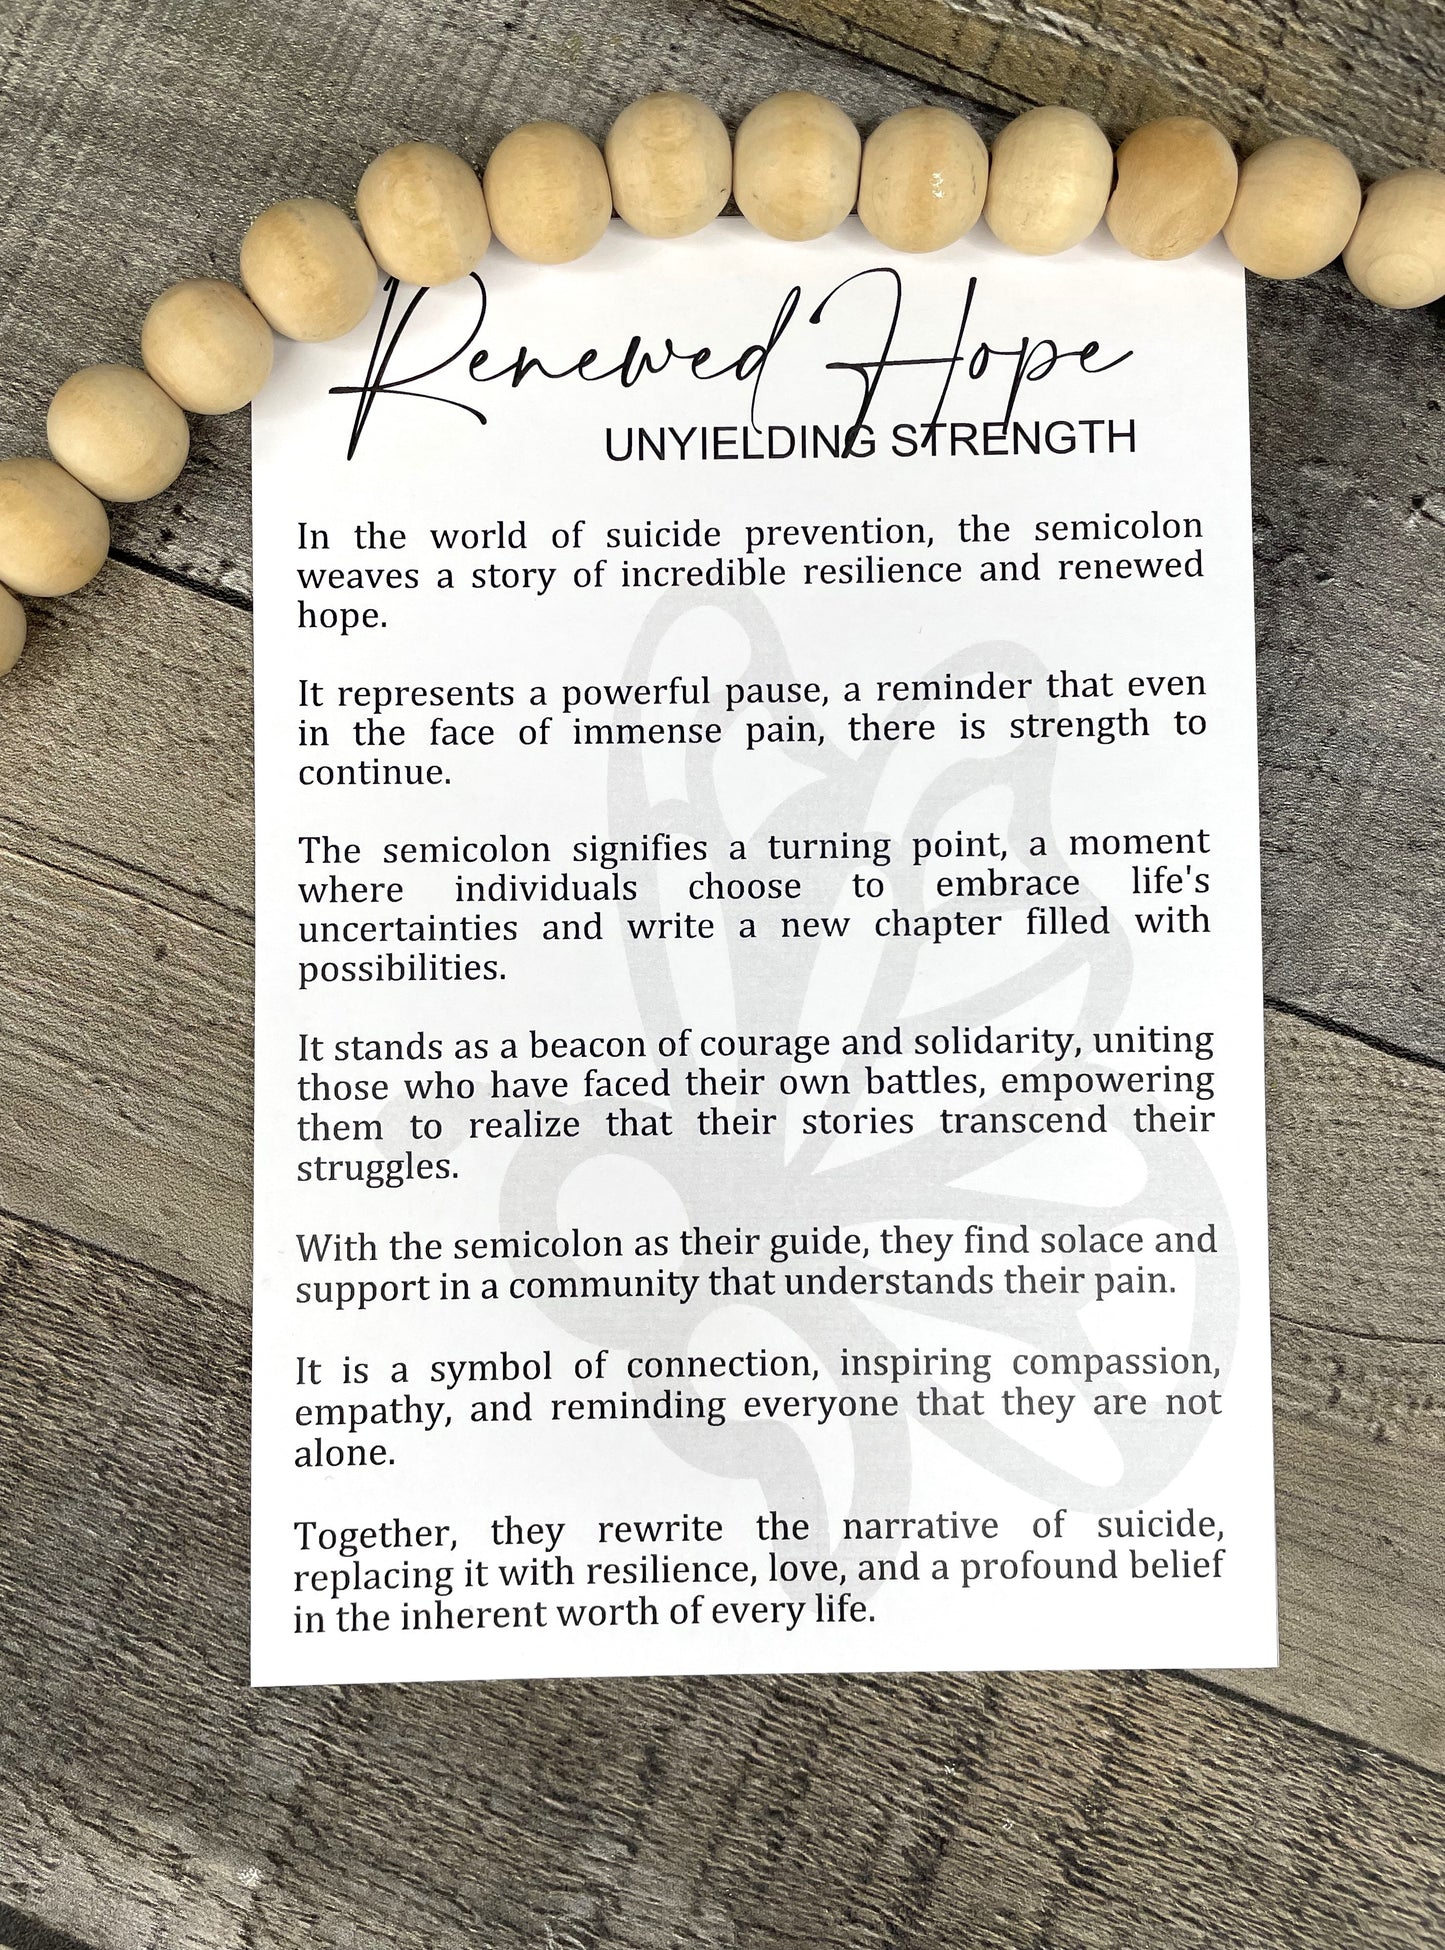 Renewed Hope
UNYIELDING STRENGTH
In the world of suicide prevention, the semicolon
weaves a story of incredible resilience and renewed
hope.
It represents a powerful pause, a reminder that even
in the face of immense pain, there is strength to
continue.
The semicolon signifies a turning point, a moment
where individuals choose to embrace life's
uncertainties and write a new chapter filled with
possibilities.
It stands as a beacon of courage and solidarity, uniting
those who have faced their own battles, empowering
them to realize that their stories transcend their
struggles.
With the semicolon as their guide, they find solace and
support in a community that understands their pain.
It is a symbol of connection, inspiring compassion,
empathy, and reminding everyone that they are not
alone.
Together, they rewrite the narrative of suicide,
replacing it with resilience, love, and a profound belief
in the inherent worth of every life.